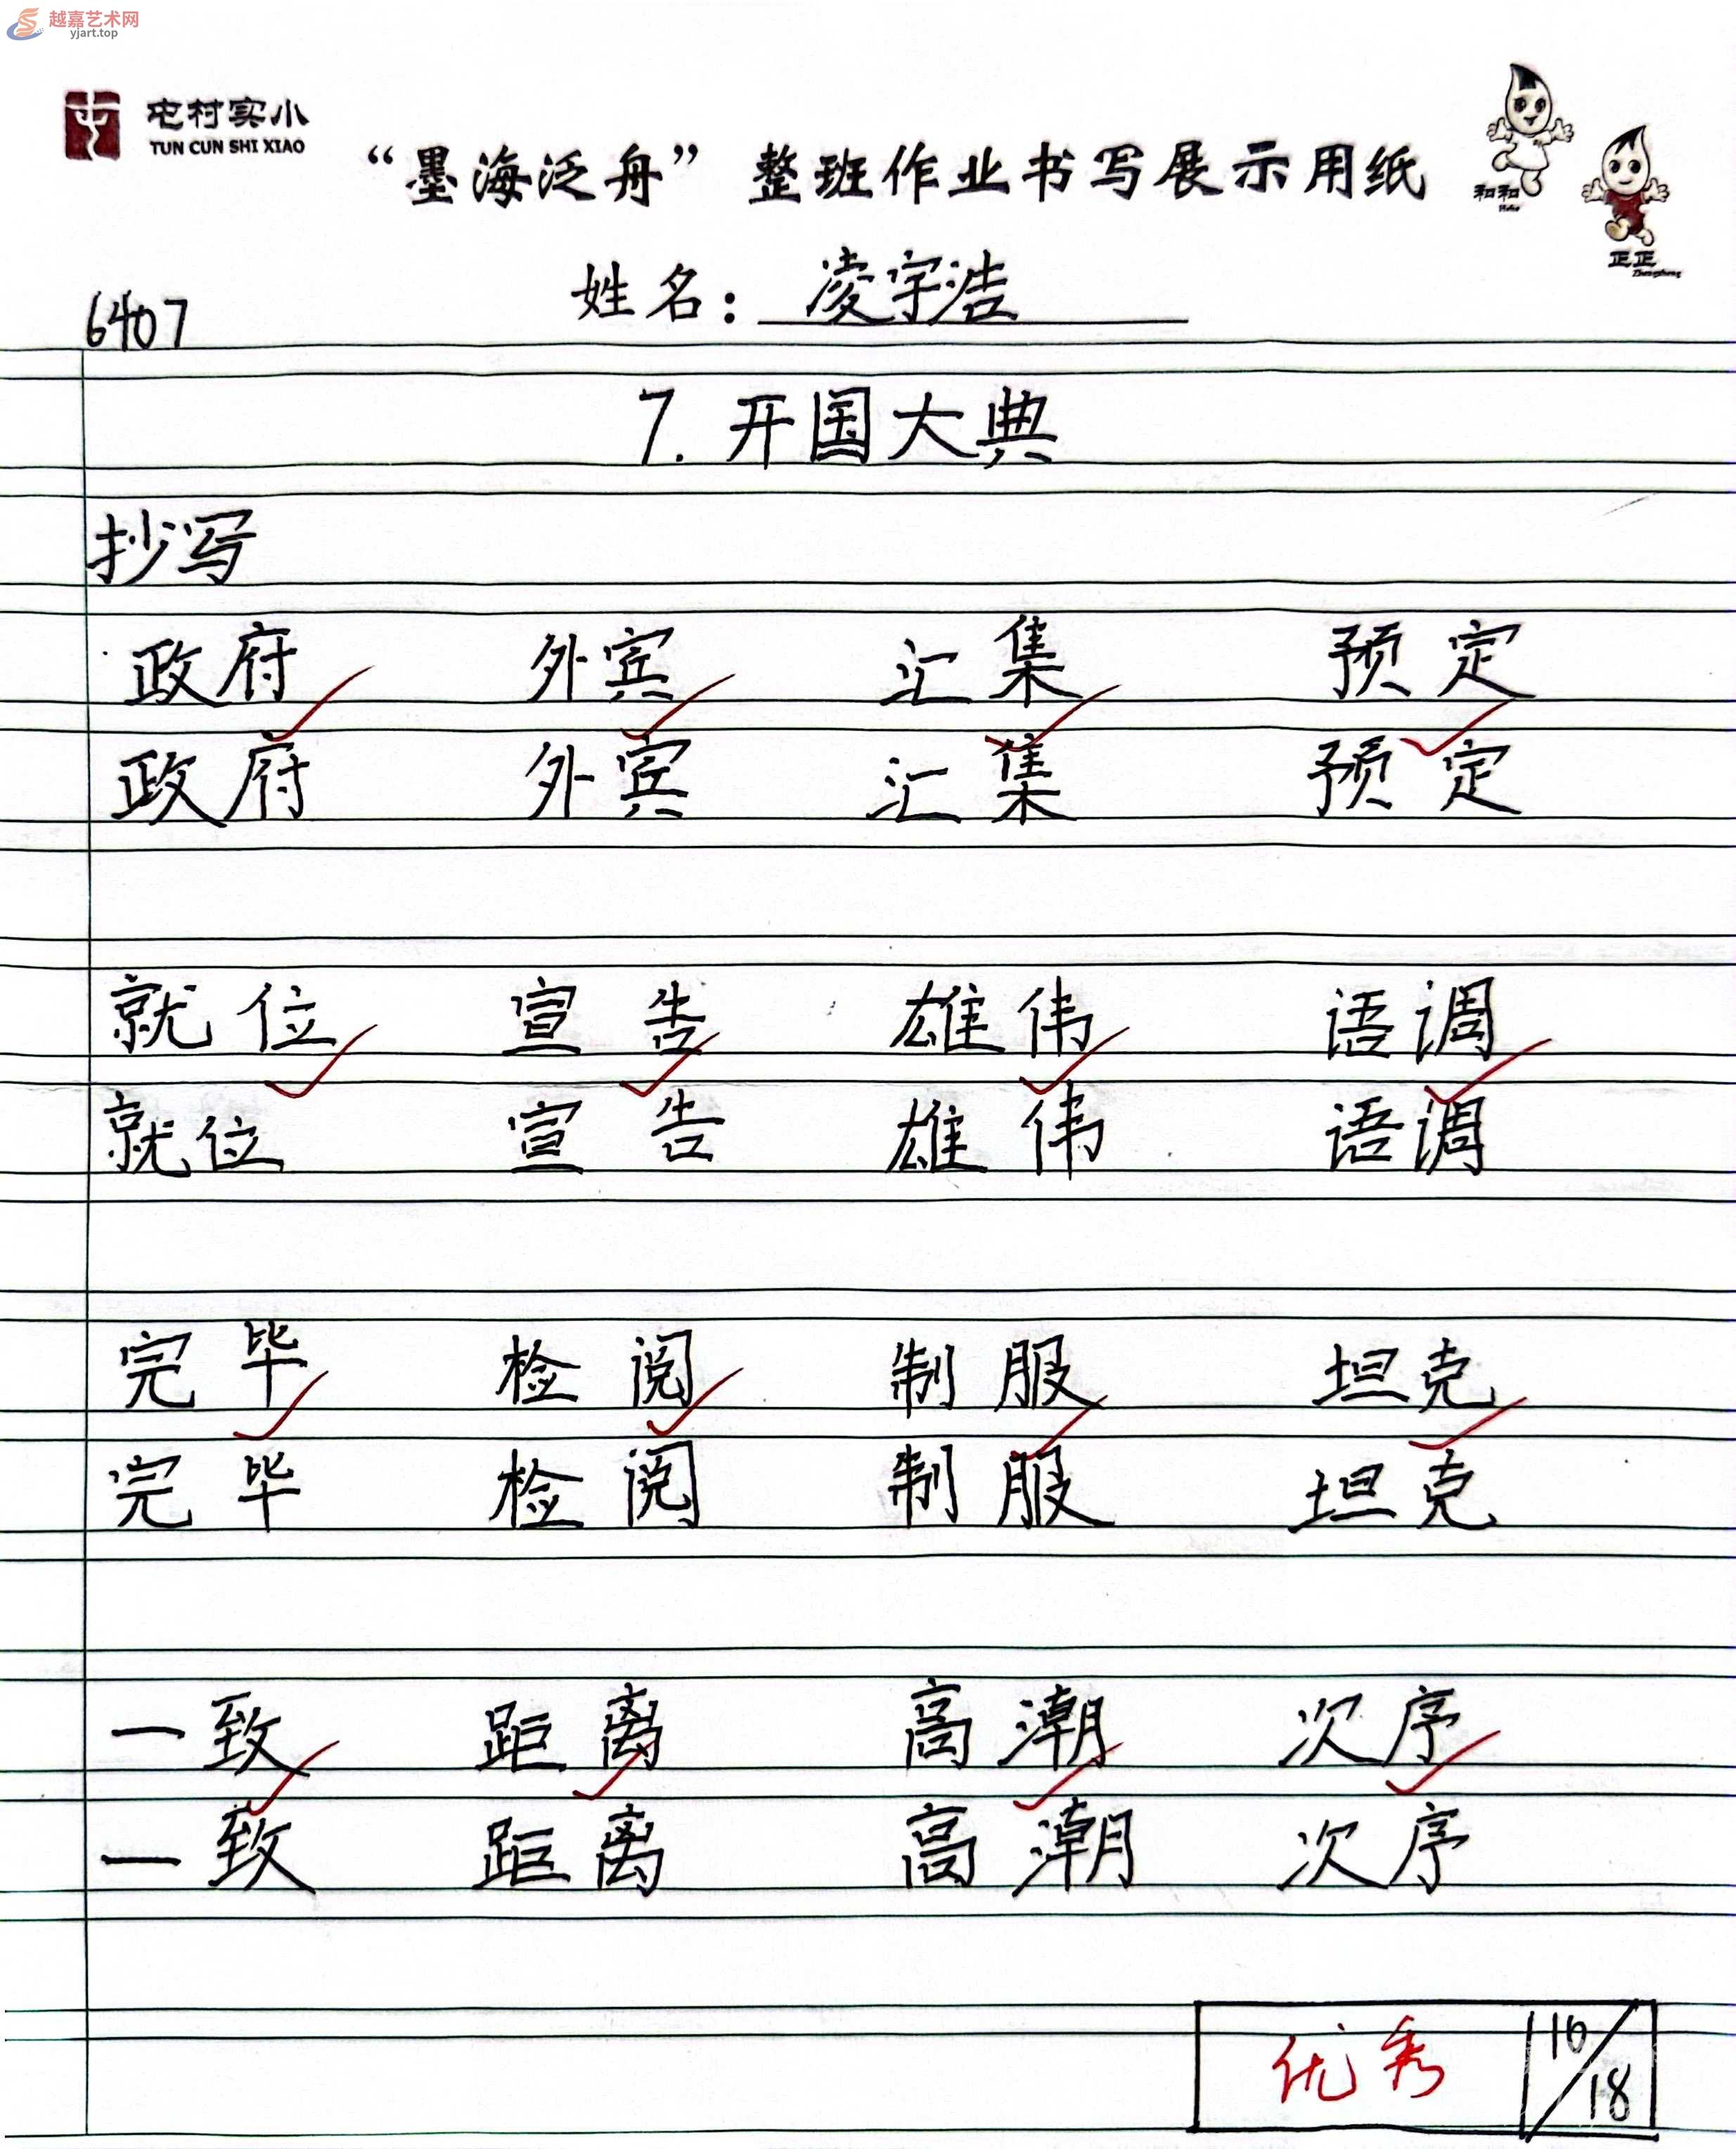 越嘉艺术网
yjart.top
屯村实小
TUN CUN SHI XIAO
“墨海泛舟”整班作业书写展示用纸
和和
Hehe
正正
Zhengzheng
姓名：凌宇浩
6407
7. 开国大典
抄写
政府 外宾 汇集 预定
政府 外宾 汇集 预定
就位 宣告 雄伟 语调
就位 宣告 雄伟 语调
完毕 检阅 制服 坦克
完毕 检阅 制服 坦克
一致 距离 高潮 次序
一致 距离 高潮 次序
优秀 10/18